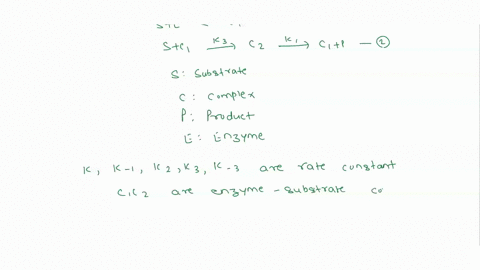 S+C₁ —K₃→ C₂ —K₁→ C₁+P — ②
S: Substrate
C: Complex
P: Product
E: Enzyme
K, K-1, K2, K3, K-3 are rate constant
C₁C₂ are enzyme-substrate co